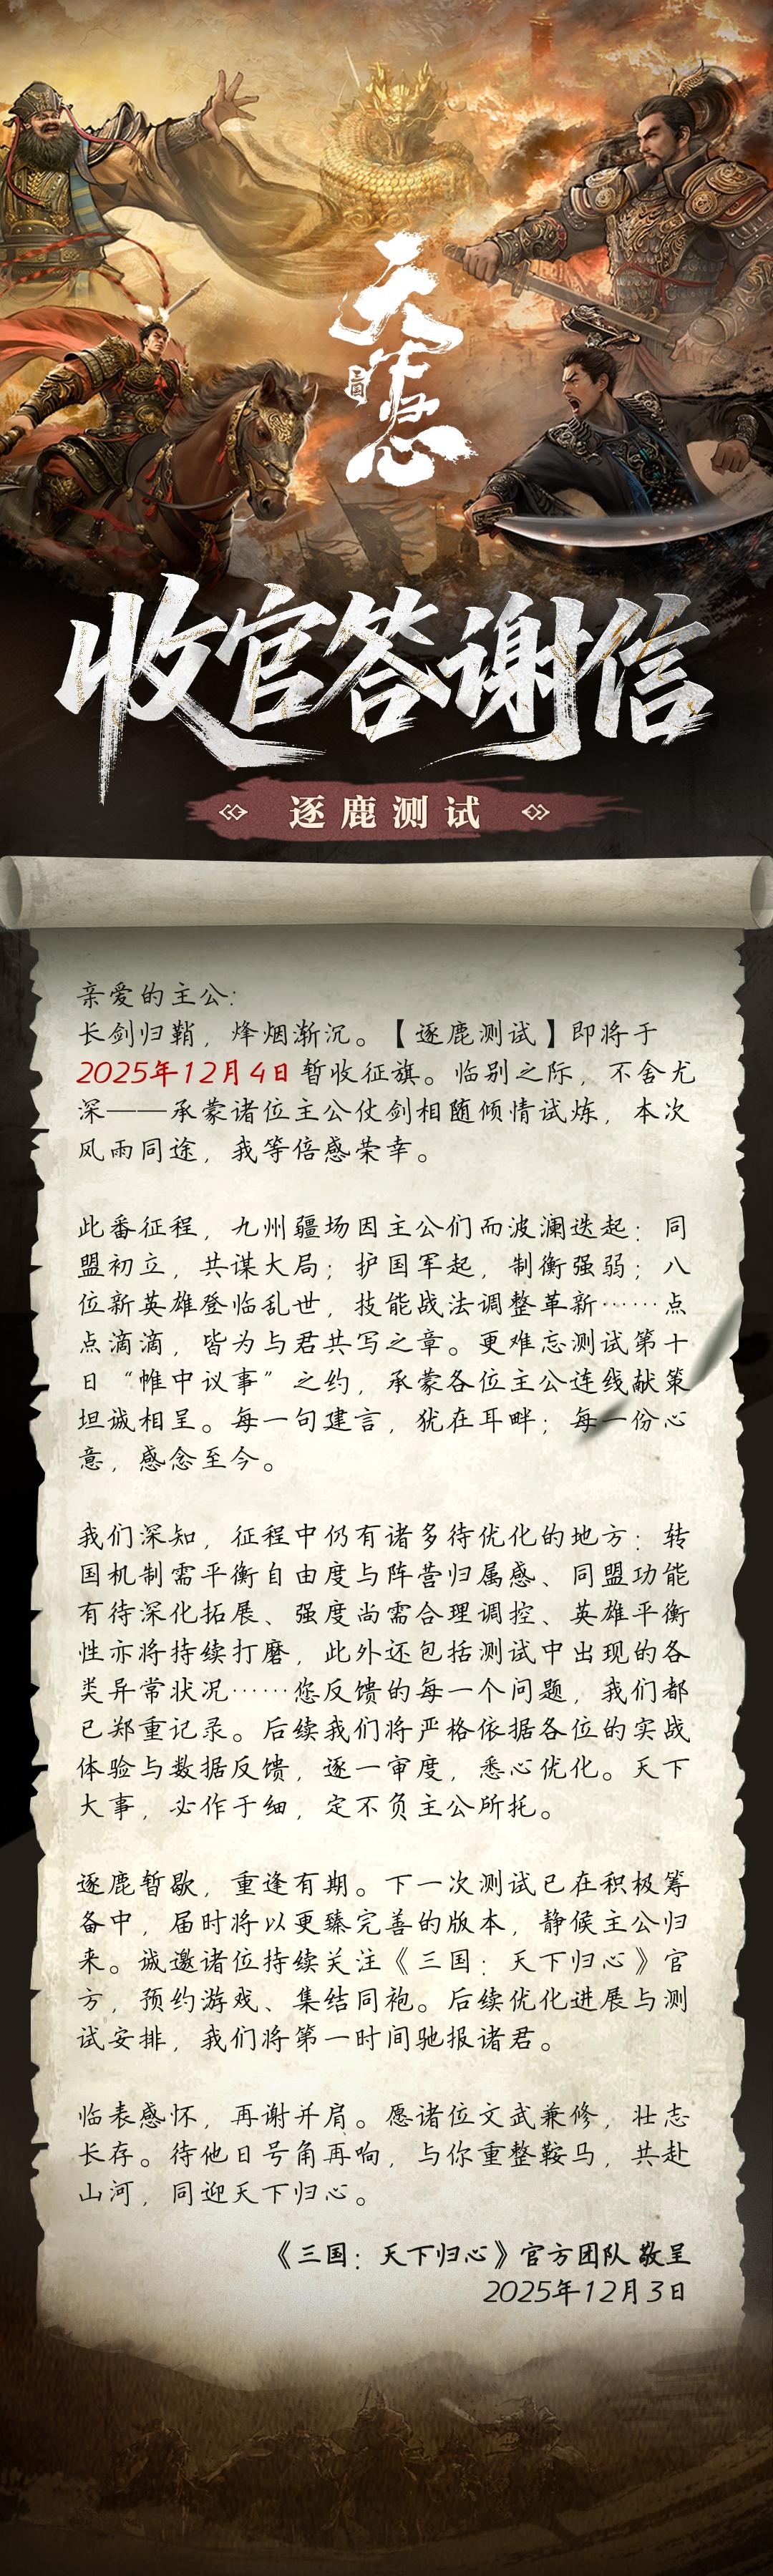 天下归心
三国
收官答谢信
逐鹿测试
亲爱的主公:
长剑归鞘，烽烟渐沉。【逐鹿测试】即将于
2025年12月4日暂收征旗。临别之际，不舍尤
深——承蒙诸位主公仗剑相随倾情试炼，本次
风雨同途，我等倍感荣幸。
此番征程，九州疆场因主公们而波澜迭起：同
盟初立，共谋大局；护国军起，制衡强弱；八
位新英雄登临乱世，技能战法调整革新……点
点滴滴，皆为与君共写之章。更难忘测试第十
日“帷中议事”之约，承蒙各位主公连线献策
坦诚相呈。每一句建言，犹在耳畔；每一份心
意，感念至今。
我们深知，征程中仍有诸多待优化的地方：转
国机制需平衡自由度与阵营归属感、同盟功能
有待深化拓展、强度尚需合理调控、英雄平衡
性亦将持续打磨，此外还包括测试中出现的各
类异常状况……您反馈的每一个问题，我们都
已郑重记录。后续我们将严格依据各位的实战
体验与数据反馈，逐一审度，悉心优化。天下
大事，必作于细，定不负主公所托。
逐鹿暂歇，重逢有期。下一次测试已在积极筹
备中，届时将以更臻完善的版本，静候主公归
来。诚邀诸位持续关注《三国：天下归心》官
方，预约游戏、集结同袍。后续优化进展与测
试安排，我们将第一时间驰报诸君。
临表感怀，再谢并肩。愿诸位文武兼修，壮志
长存。待他日号角再响，与你重整鞍马，共赴
山河，同迎天下归心。
《三国：天下归心》官方团队 敬呈
2025年12月3日